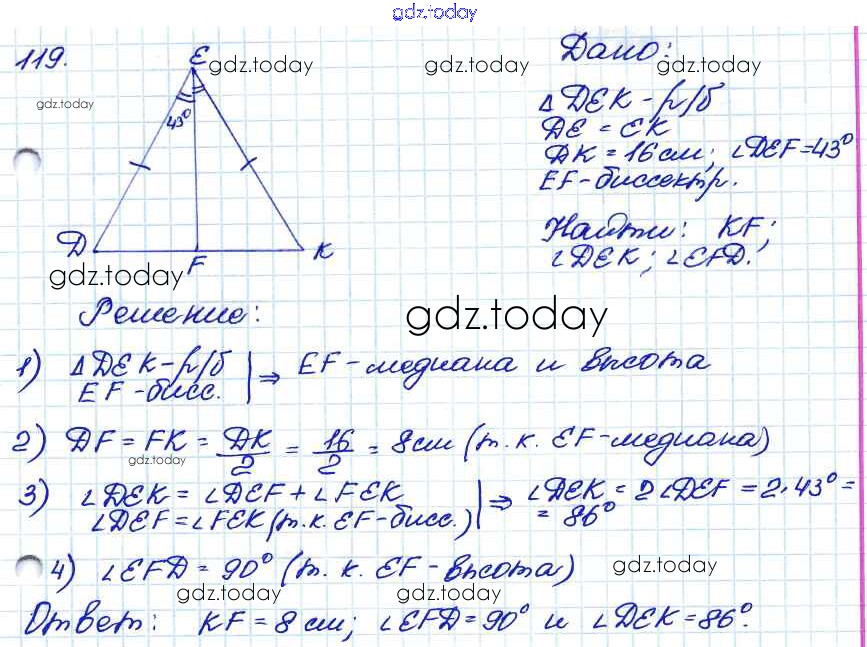 gdz.today
119.
E
gdz.today
gdz.today
gdz.today
43°
D
F
K
gdz.today
Дано:
△DEK - р/б
DE = EK
DK = 16 см; ∠DEF = 43°
EF - биссектр.
Найти: KF;
∠DEK; ∠EFD.
Решение:
gdz.today
1) △DEK - р/б | ⇒ EF - медиана и высота
EF - бисс.
2) DF = FK = DK/2 = 16/2 = 8 см (т. к. EF - медиана)
gdz.today
3) ∠DEK = ∠DEF + ∠FEK | ⇒ ∠DEK = 2∠DEF = 2·43° =
∠DEF = ∠FEK (т. к. EF - бисс.) = 86°
4) ∠EFD = 90° (т. к. EF - высота)
gdz.today
gdz.today
gdz.today
Ответ: KF = 8 см; ∠EFD = 90° и ∠DEK = 86°.